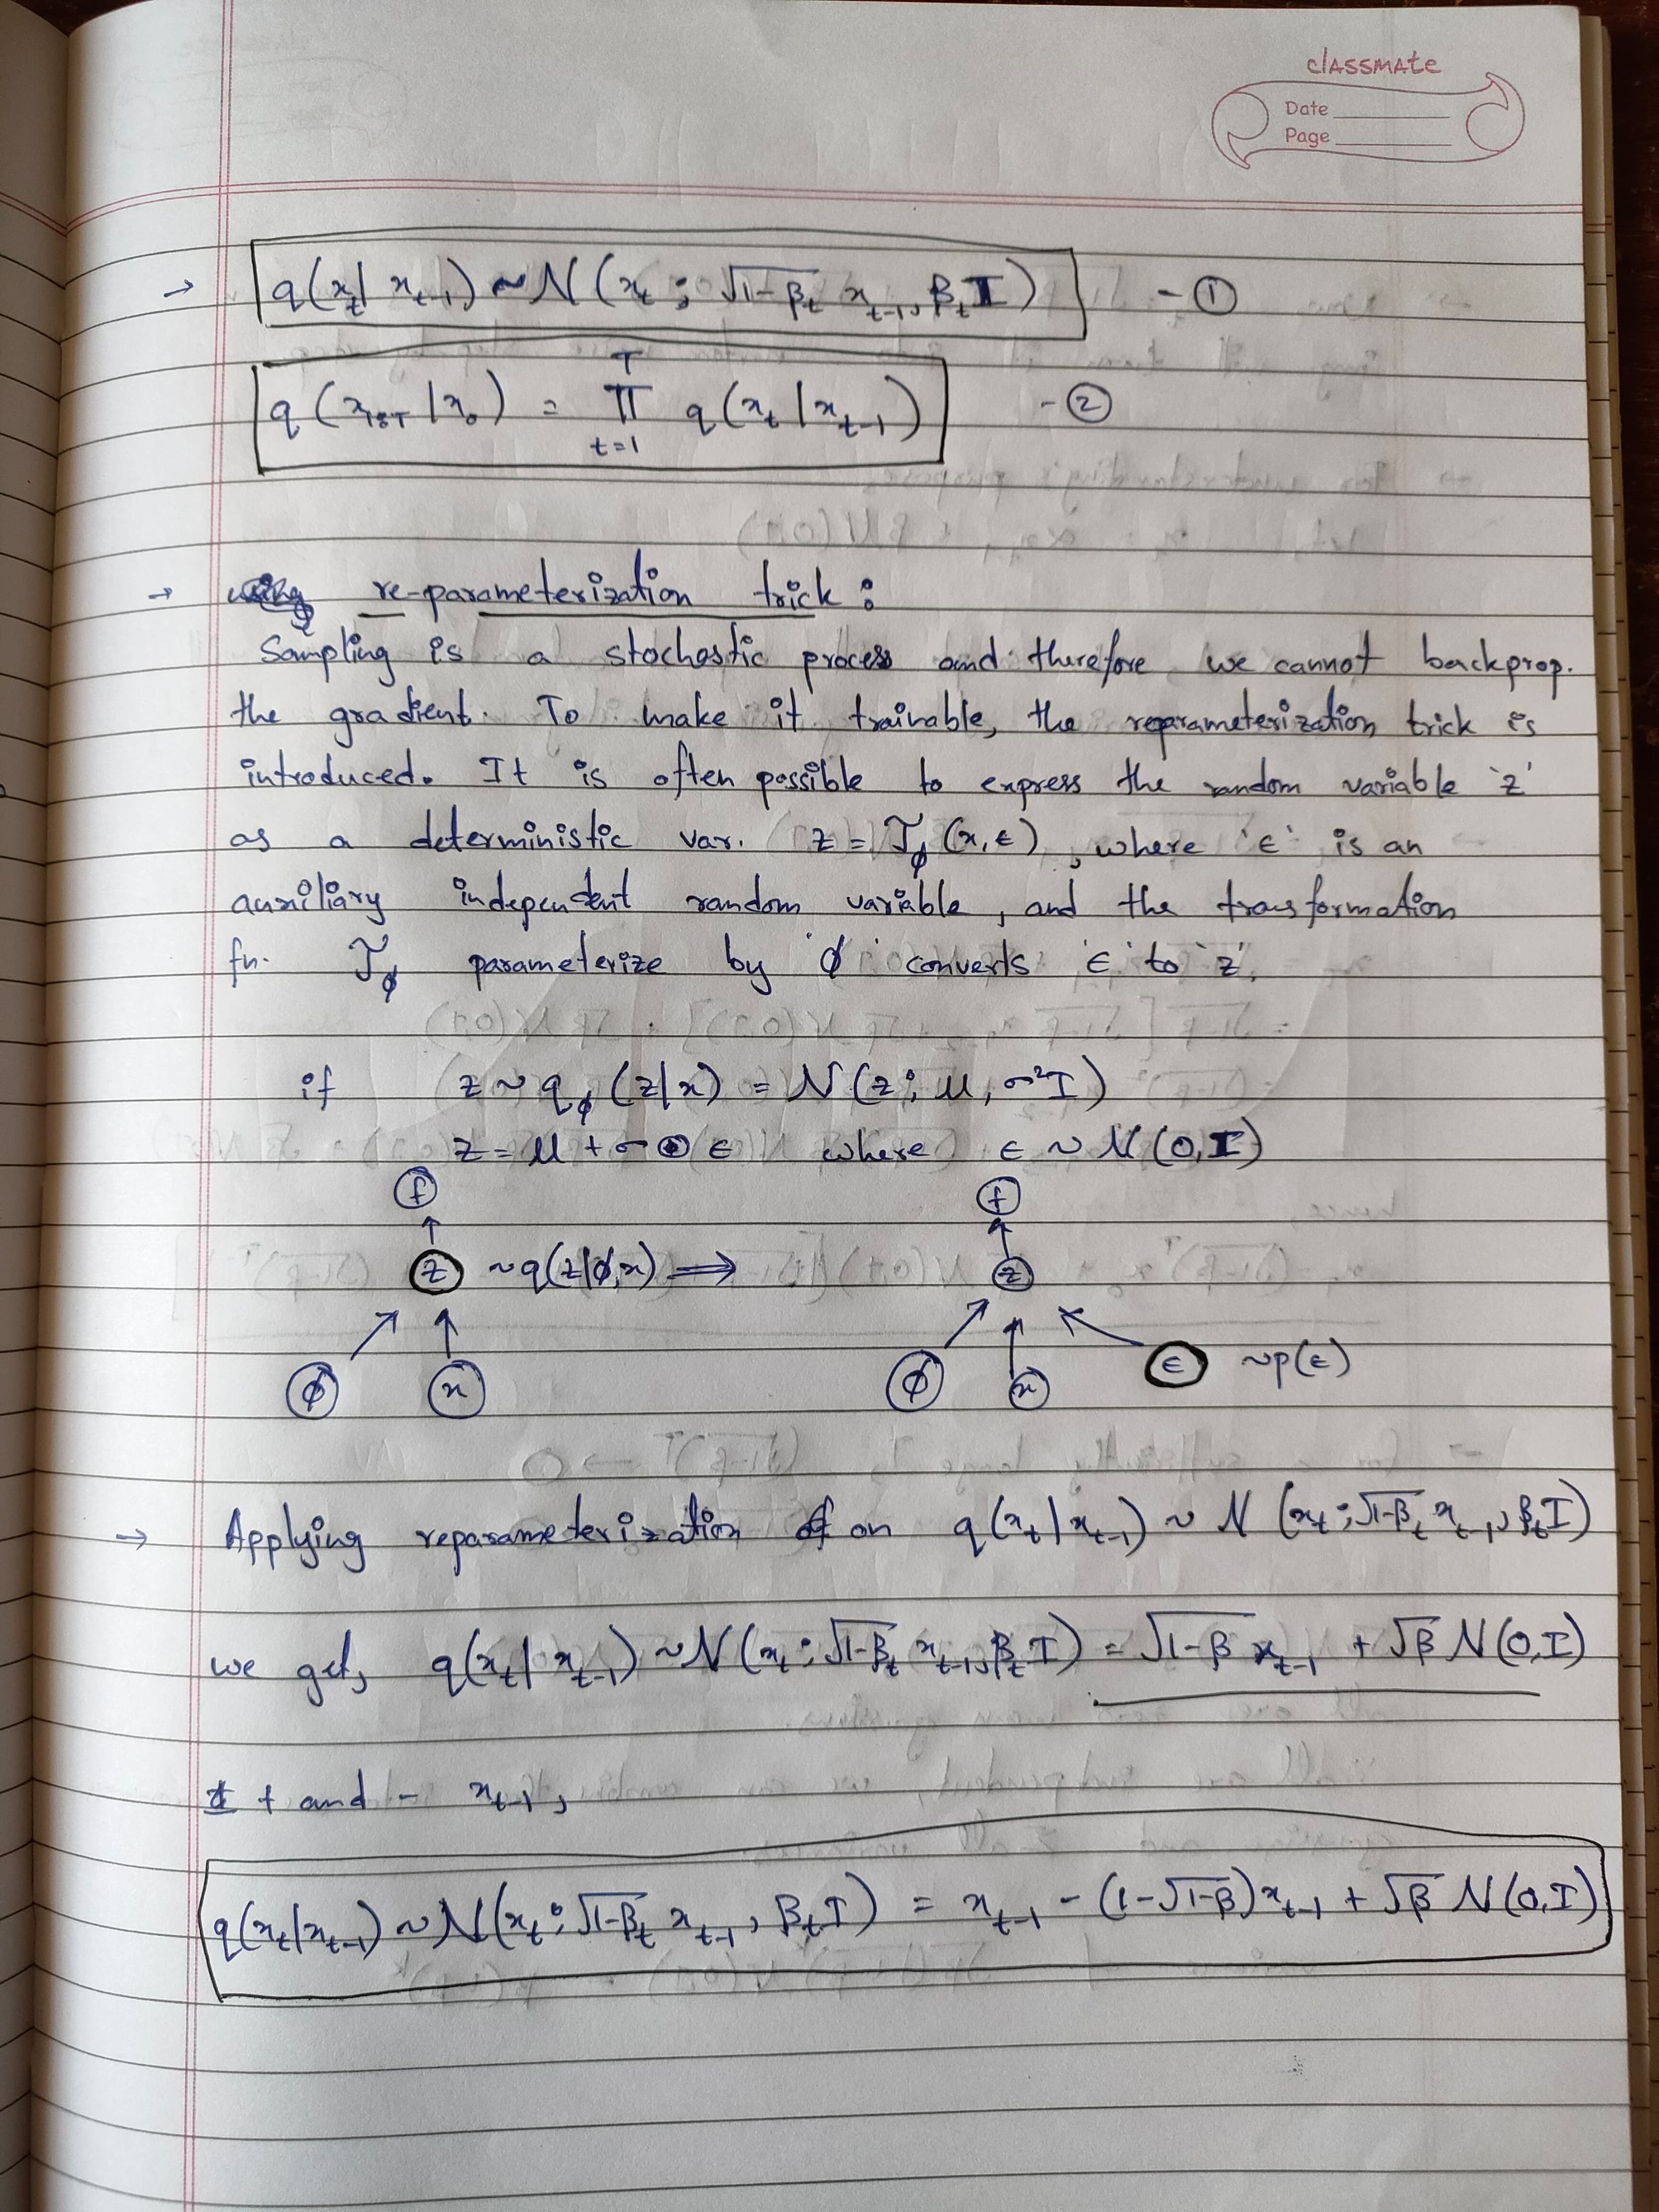 classmate
Date
Page
→ q(x_t | x_{t-1}) ~ N(x_t ; √(1-β_t) x_{t-1}, β_t I) - ①
q(x_{1:T} | x_0) = ∏_{t=1}^{T} q(x_t | x_{t-1}) - ②
→ re-parameterization trick :
Sampling is a stochastic process and therefore we cannot backprop.
the gradient. To make it trainable, the reparameterization trick is
introduced. It is often possible to express the random variable 'z'
as a deterministic var. z = T_ϕ (x, ϵ), where 'ϵ' is an
auxiliary independent random variable, and the transformation
fn. T_ϕ parameterize by 'ϕ' converts 'ϵ' to 'z'.
if z ~ q_ϕ (z|x) = N(z; μ, σ²I)
z = μ + σ ⊙ ϵ where ϵ ~ N(0, I)
f f
z ~q(z|ϕ,x) ⟹ z
ϕ x ϕ x ϵ ~p(ϵ)
→ Applying reparameterization on q(x_t | x_{t-1}) ~ N(x_t ; √(1-β_t) x_{t-1}, β_t I)
we get, q(x_t | x_{t-1}) ~ N(x_t ; √(1-β_t) x_{t-1}, β_t I) = √(1-β) x_{t-1} + √β N(0, I)
+ and - x_{t-1},
q(x_t | x_{t-1}) ~ N(x_t ; √(1-β_t) x_{t-1}, β_t I) = x_{t-1} - (1-√(1-β)) x_{t-1} + √β N(0, I)